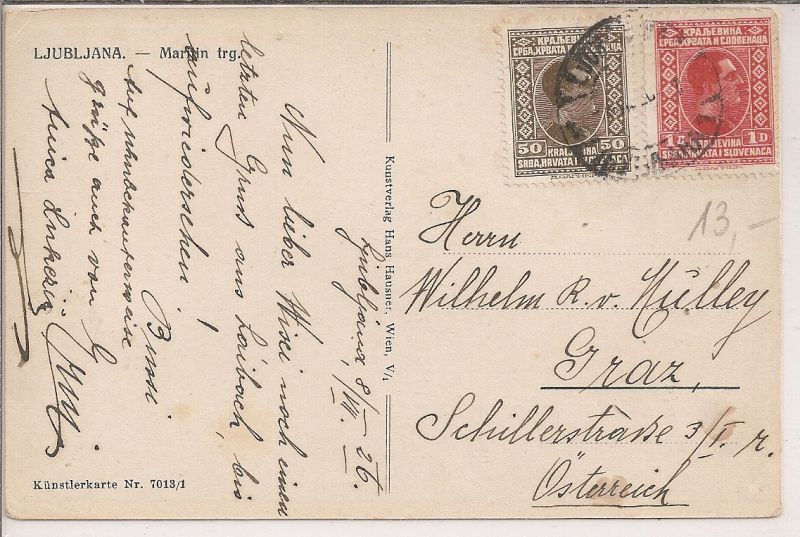 LJUBLJANA. — Marijin trg.
КРАЉЕВИНА
СРБА, ХРВАТА И СЛОВЕНАЦА
50 50
KRALJEVINA
SRBA, HRVATA I SLOVENACA
КРАЉЕВИНА
СРБА, ХРВАТА И СЛОВЕНАЦА
1 D 1 D
KRALJEVINA
SRBA, HRVATA I SLOVENACA
13,-
Ljubljana, 8/VII. 26.
Nun lieber Wisei noch einen
letzten Gruß aus Laibach, bis
aufwiedersehen!
Bussi
Auf unbekannterweise
Grüße auch von
Kunstverlag Hans Hausner, Wien, V/1
Herrn
Wilhelm R. v. Mulley
Graz,
Schillerstraße 3/I. r.
Österreich
Künstlerkarte Nr. 7013/1